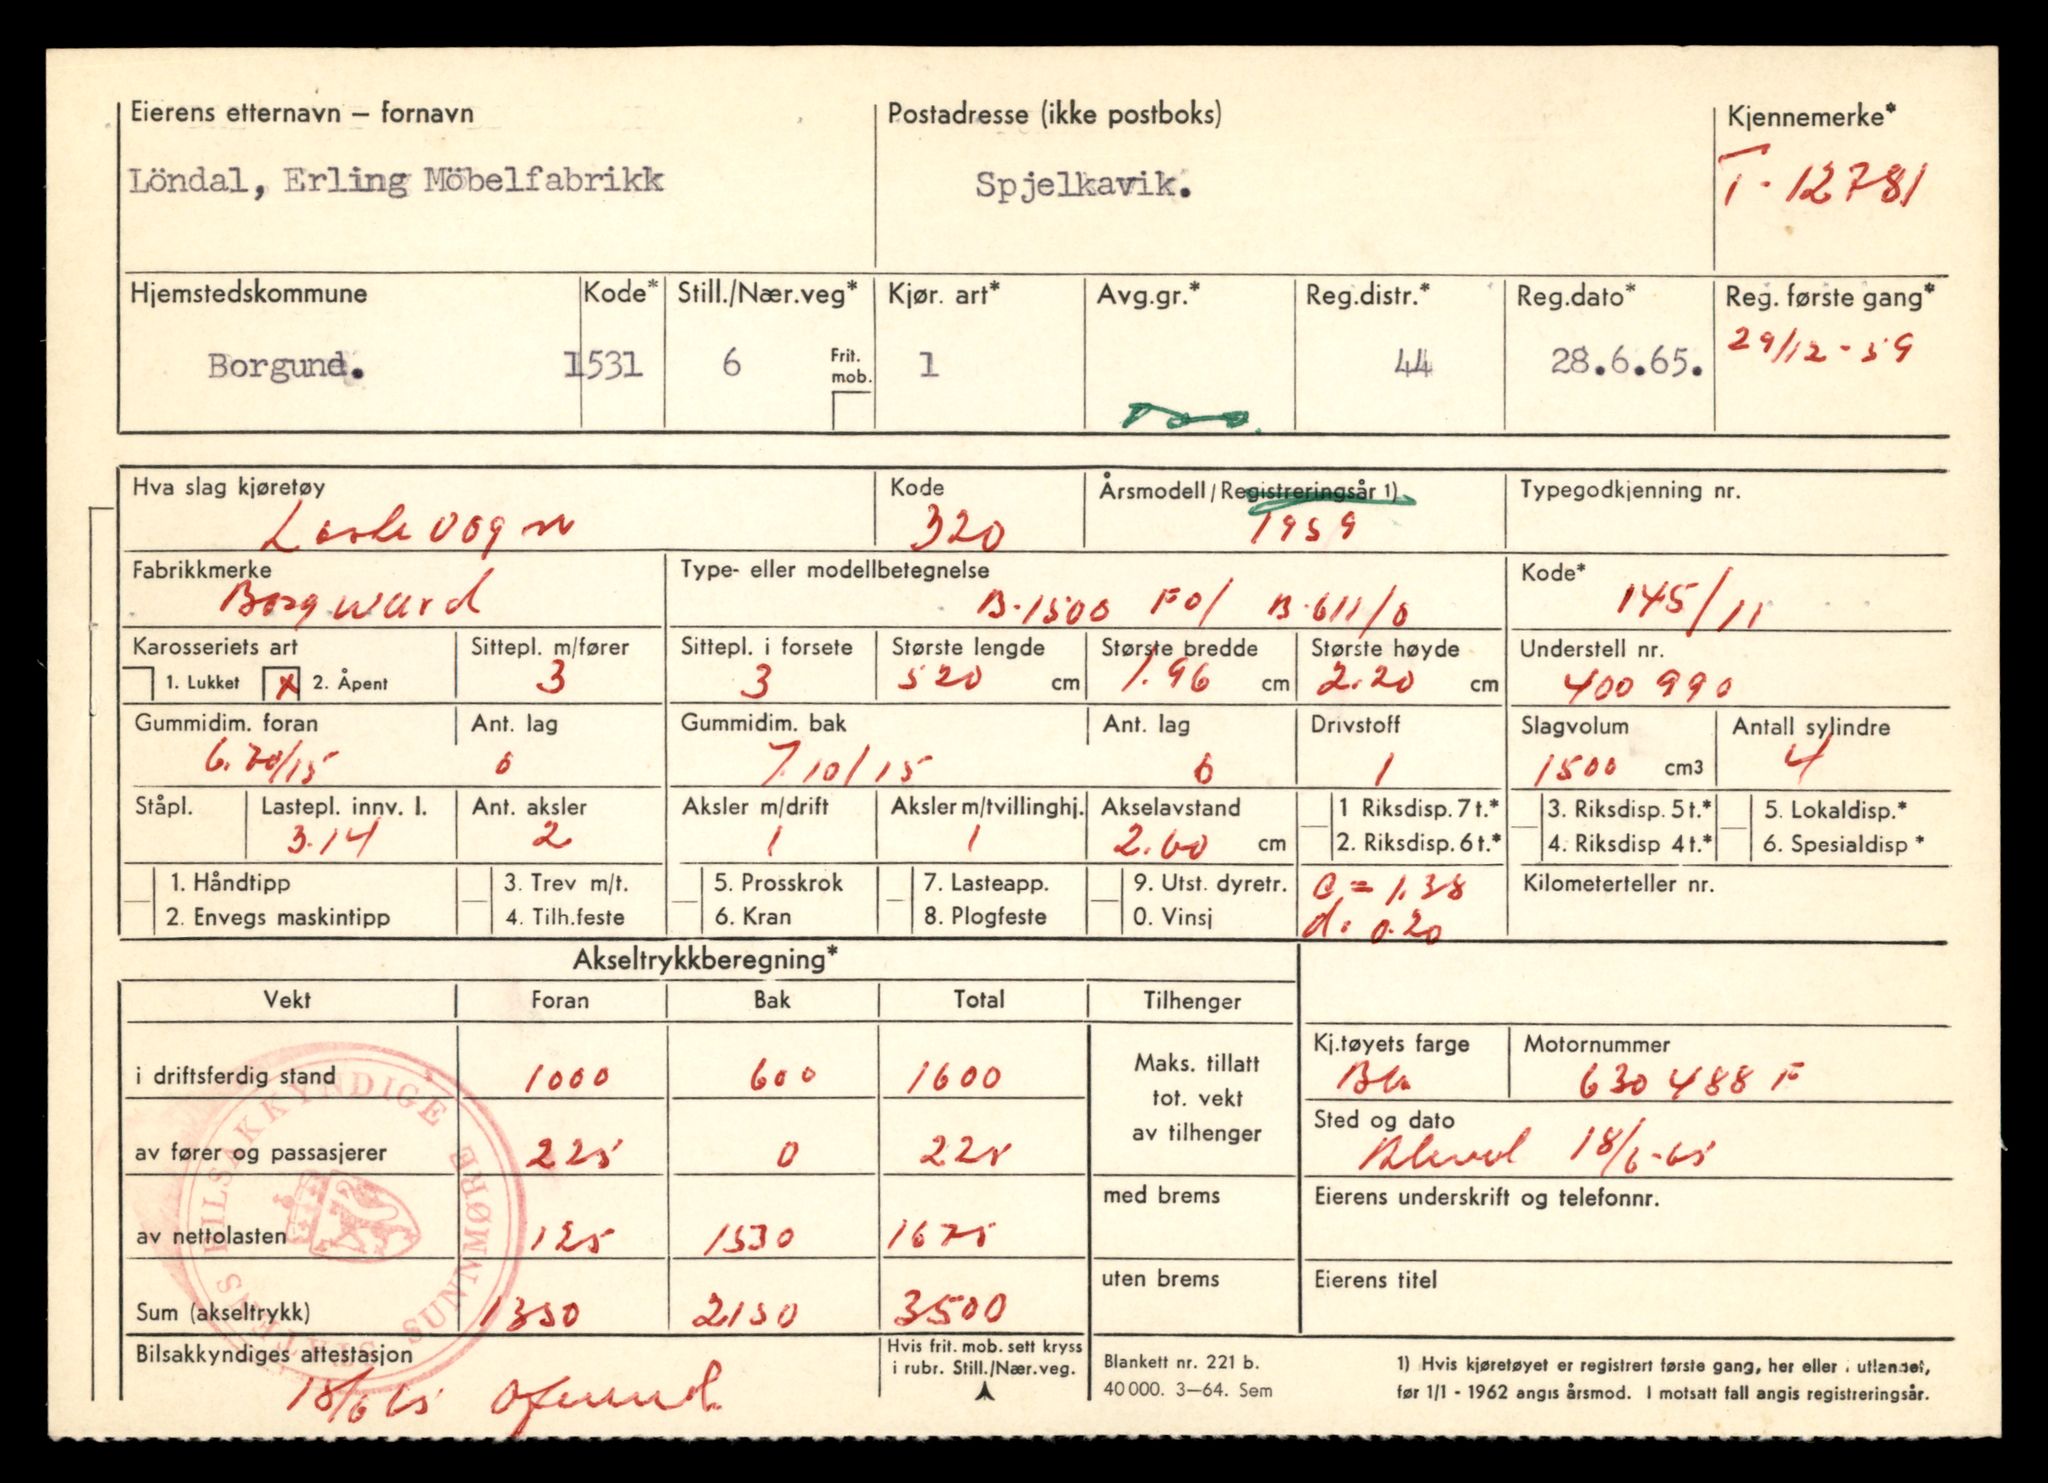 Eierens etternavn – fornavn
Löndal, Erling Möbelfabrikk
Postadresse (ikke postboks)
Spjelkavik.
Kjennemerke*
T-12781
Hjemstedskommune
Borgund.
Kode*
1531
Still./Nær.veg*
6
Frit. mob.
Kjør. art*
1
Avg.gr.*
Reg.distr.*
44
Reg.dato*
28.6.65.
Reg. første gang*
29/12-59
Hva slag kjøretøy
Lastevogn
Kode
320
Årsmodell/Registreringsår 1)
1959
Typegodkjenning nr.
Fabrikkmerke
Borgward
Type- eller modellbetegnelse
B-1500 F0/ B-611/0
Kode*
145/11
Karosseriets art
1. Lukket x 2. Åpent
Sittepl. m/fører
3
Sittepl. i forsete
3
Største lengde
520 cm
Største bredde
1.96 cm
Største høyde
2.20 cm
Understell nr.
400990
Gummidim. foran
6.70/15
Ant. lag
6
Gummidim. bak
7.10/15
Ant. lag
6
Drivstoff
1
Slagvolum
1500 cm3
Antall sylindre
4
Ståpl.
Lastepl. innv. l.
3.14
Ant. aksler
2
Aksler m/drift
1
Aksler m/tvillinghj.
1
Akselavstand
2.60 cm
1 Riksdisp. 7 t.*
2. Riksdisp. 6 t.*
3. Riksdisp. 5 t.*
4. Riksdisp 4 t.*
5. Lokaldisp.*
6. Spesialdisp *
1. Håndtipp
2. Envegs maskintipp
3. Trev m/t.
4. Tilh.feste
5. Prosskrok
6. Kran
7. Lasteapp.
8. Plogfeste
9. Utst. dyretr.
0. Vinsj
c = 1.38
d. 0.20
Kilometerteller nr.
Akseltrykkberegning*
Vekt Foran Bak Total Tilhenger
i driftsferdig stand 1000 600 1600
av fører og passasjerer 225 0 225
av nettolasten 125 1530 1675
Sum (akseltrykk) 1350 2150 3500
Maks. tillatt
tot. vekt
av tilhenger
med brems
uten brems
Kj.tøyets farge
Blå
Motornummer
630488 F
Sted og dato
18/6-65
Eierens underskrift og telefonnr.
Eierens titel
Bilsakkyndiges attestasjon
18/6 65
Hvis frit. mob. sett kryss
i rubr. Still./Nær.veg.
Blankett nr. 221 b.
40 000. 3–64. Sem
1) Hvis kjøretøyet er registrert første gang, her eller i utlandet,
før 1/1 - 1962 angis årsmod. I motsatt fall angis registreringsår.
STATENS BILSAKKYNDIGE SUNNMØRE